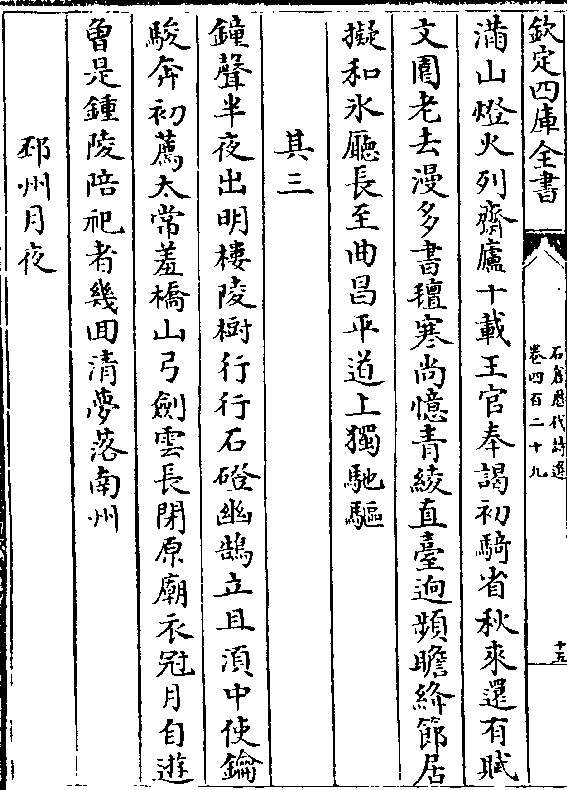 欽定四庫全書
石倉歷代詩選
卷四百二十九
十五
滿山燈火列齋廬十載王官奉謁初騎省秋來還有賦
文園老去漫多書氊寒尚憶青綾直臺迥頻瞻絳節居
擬和氷廳長至曲昌平道上獨馳驅
其三
鐘聲半夜出明樓陵樹行行石磴幽鵠立且須中使鑰
駿奔初薦太常羞橋山弓劍雲長閉原廟衣冠月自遊
曾是鍾陵陪祀者幾囬清夢落南州
邳州月夜